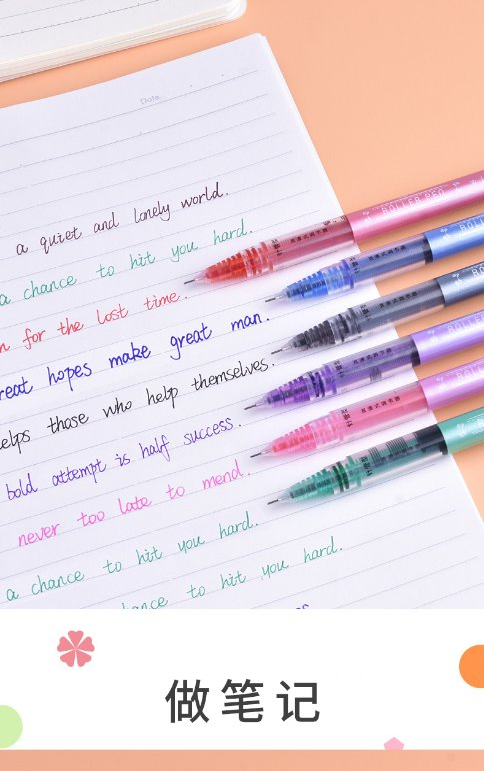 Date
a quiet and lonely world.
a chance to hit you hard.
for the lost time.
great hopes make great man.
helps those who help themselves.
bold attempt is half success.
never too late to mend.
a chance to hit you hard.
chance to hit you hard.
ROLLER PEN
做笔记